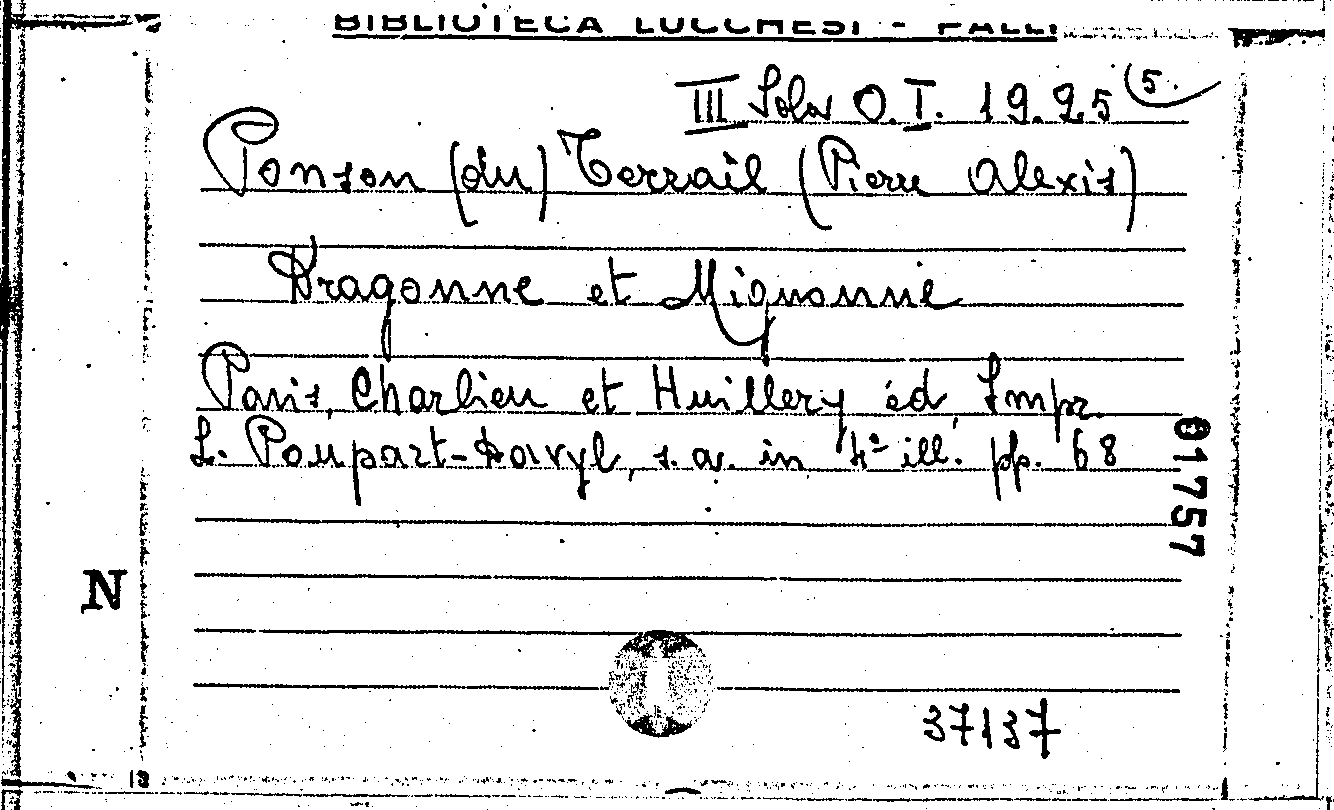 BIBLIOTECA LUCCHESI - PALLI
III Sala O.I. 19.25 (5.
Ponson (du) Terrail (Pierre Alexis)
Dragonne et Mignonne
Paris, Charlieu et Huillery éd. Impr.
L. Poupart-Davyl, s.a. in 4º ill. pp. 68
01757
N
37137
18